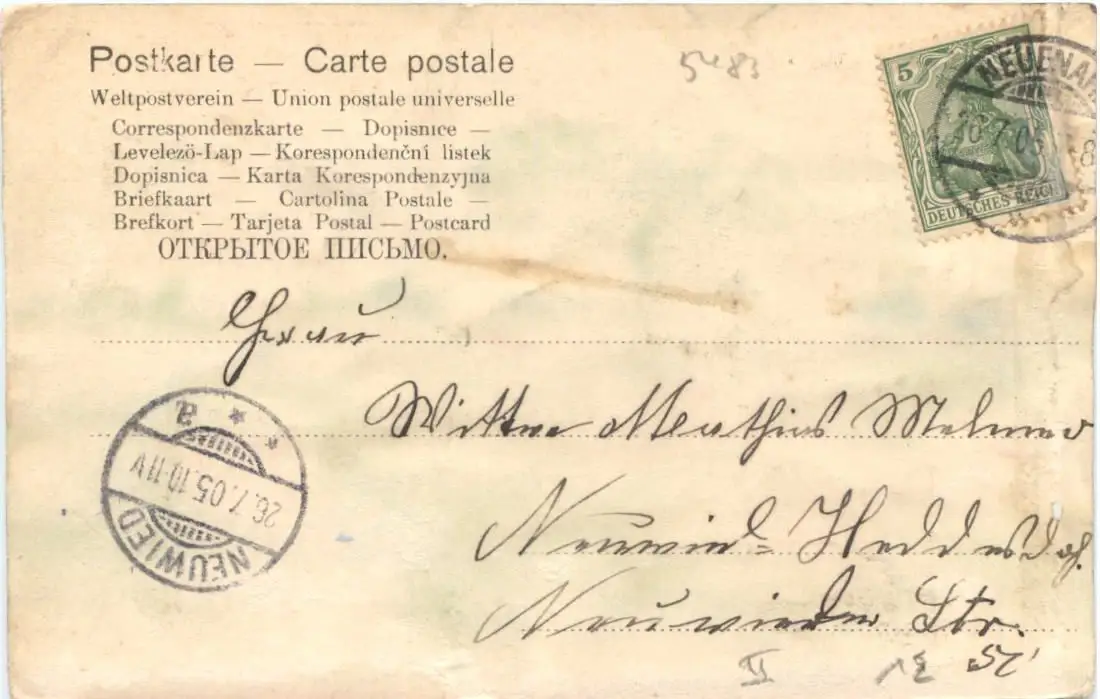 Postkarte — Carte postale
Weltpostverein — Union postale universelle
Correspondenzkarte — Dopisnice —
Levelezö-Lap — Korespondenční listek
Dopisnica — Karta Korespondenzyjna
Briefkaart — Cartolina Postale —
Brefkort — Tarjeta Postal — Postcard
ОТКРЫТОЕ ПИСЬМО.
5483
5
NEUENAH
7.05
8
DEUTSCHES REICH
Frau
Wittwe Mathias
Neuwied-Heddesdof.
Neuwieder Str.
NEUWIED
26.7.05.10-11V
a
II